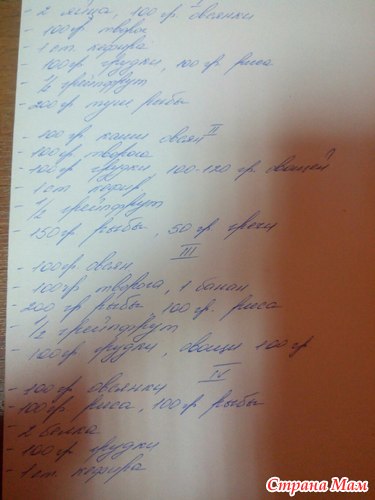 I
- 2 яйца, 100 гр. овсянки
- 100 гр творог
- 1 ст. кефира
- 100 гр грудки, 100 гр. риса
- 1/2 грейпфрут
- 200 гр туше рыбы
II
- 100 гр. каши овсян
- 100 гр творога
- 100 гр грудки 100-120 гр. овощей?
- 1 ст кефир
- 1/2 грейпфрут
- 150 гр рыбы, 50 гр. гречи
III
- 100 гр. овсян
- 100 гр творога, 1 банан
- 200 гр рыбы 100 гр. риса
- 1/2 грейпфрут
- 100 гр грудки, овощи 100 гр
IV
- 100 гр овсянки
- 100 гр риса, 100 гр рыбы
- 2 белка
- 100 гр грудки
- 1 ст. кефира
Страна Мам